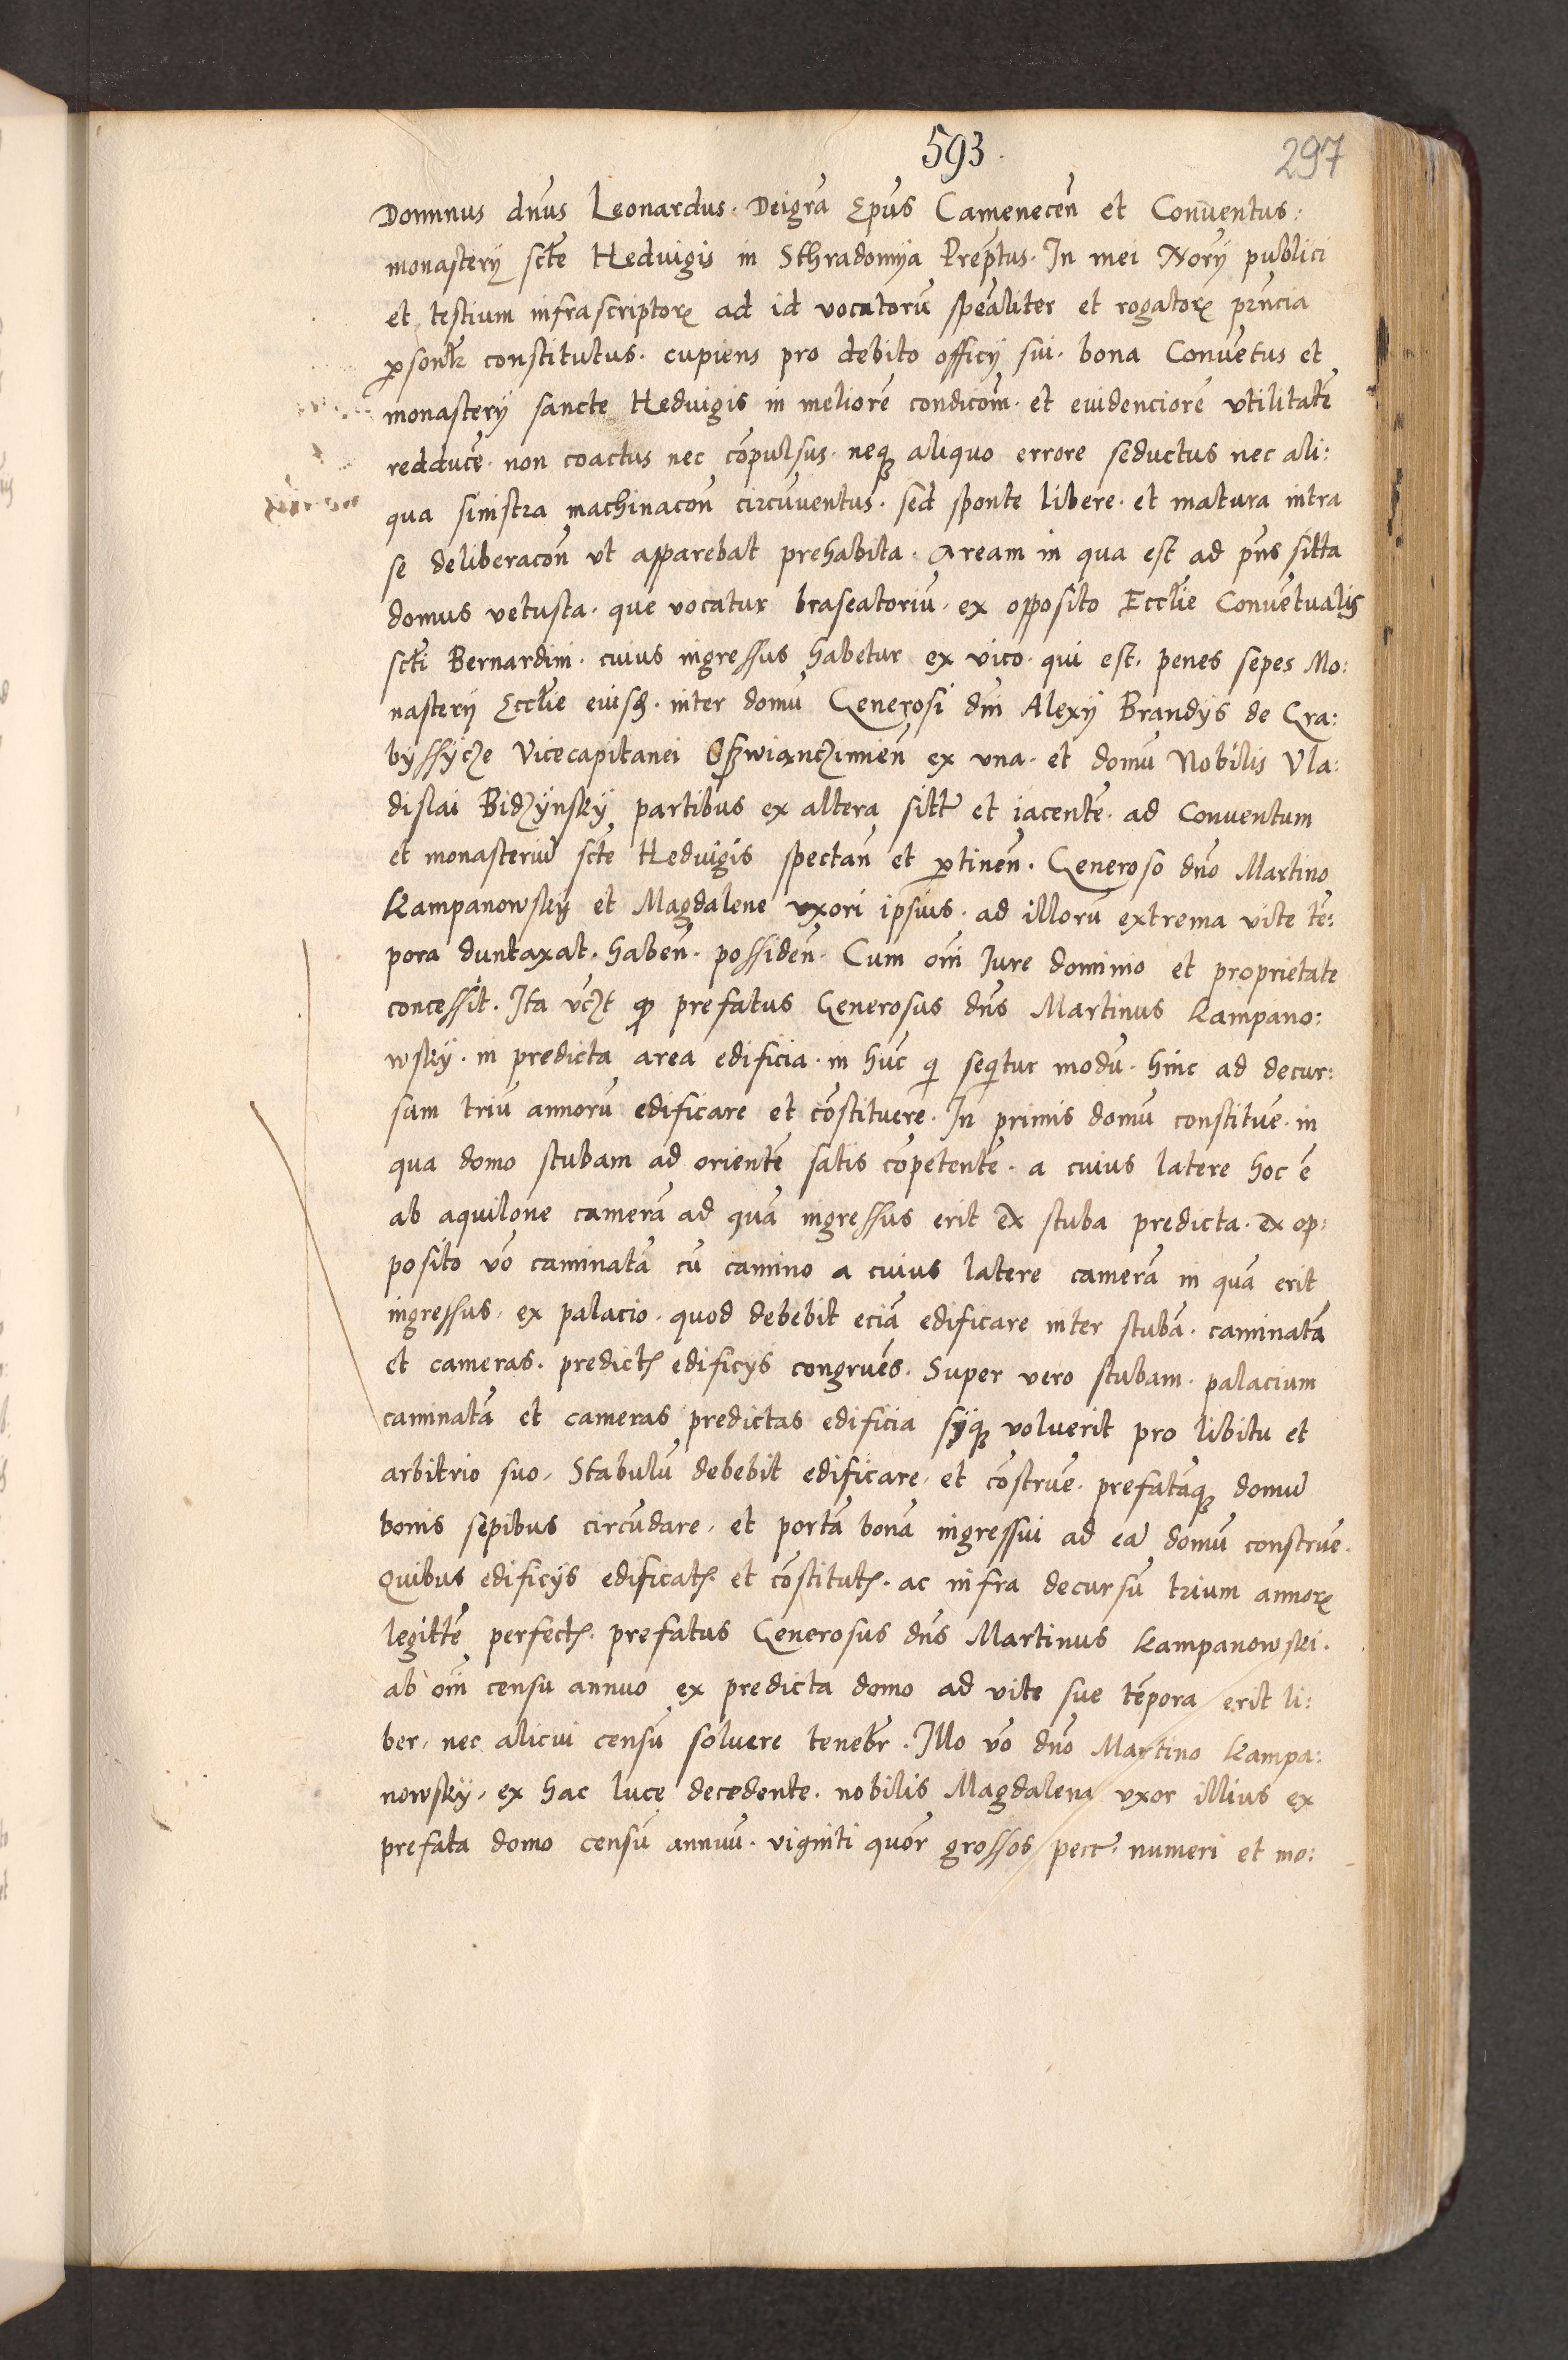 593.
297
Dominus dn̄us Leonardus. Deigr̄a Ep̄us Camenecen̄ et Conventus:
monastery scte Hedvigis in Sthradomija Prep̄tus. In mei No͞rij publici
et testium infrascriptorꝝ ad id vocatorū spēaliter et rogatorꝝ p̄ncia
ꝑsonl̄r constitutus. cupiens pro debito officij sui. bona Convētus et
monasterij sancte Hedvigis in meliorē condicōm. et evidenciorē vtilitatē
redducē. non coactus nec cōpulsus. neqꝫ aliquo errore seductus nec ali:
qua sinistra machinacōn circūventus. sed sponte libere. et matura intra
se deliberacōn ut apparebat prehabita. Aream in qua est ad pn̄s sitta
domus vetusta. que vocatur braseatoriū. ex opposito Eccl̄ie Convētualis
scti Bernardini. cuius ingressus habetur ex vico. qui est. penes sepes Mo:
nasterij Eccl̄ie eiusꝫ. inter domū Generosi dn̄i Alexij Brandijs de Gra:
byssÿcze Vicecapitanei Osswianczimien̄ ex vna. et domū Nobilis Vla:
dislai Bidzÿnskÿ partibus ex altera sitt̄ et iacentē. ad Conventum
et monasteriū scte Hedvigis spectan̄ et ꝑtinen̄. Generoso dn̄o Martino
Kampanowskÿ et Magdalene vxori ipsius. ad illorū extrema vite tē:
pora duntaxat. haben̄. possiden̄. Cum om̄i Jure dominio et proprietate
concessit. Ita vcꝫt ꝙ prefatus Generosus dn̄s Martinus Kampano:
wskÿ. in predicta area edificia. in hūc qi seqitur modū. hinc ad decur:
sum triū annorū edificare et cōstituere. In primis domū constitue. in
qua domo stubam ad orientē satis cōpetentē. a cuius latere hoc ē
ab aquilone camerā ad quā ingressus erit ex stuba predicta. ex op:
posito vō caminatā cū camino a cuius latere camerā in quā erit
ingressus. ex palacio. quod debebit eciā edificare inter stubā. caminatā
et cameras. predictꝭ edificijs congruēs. Super vero stubam. palacium
caminatā et cameras predictas edificia sÿqꝫ voluerit pro libitu et
arbitrio suo. Stabulū debebit edificare. et cōstrue. prefatāqꝫ domū
bonis sepibus circūdare. et portā bonā ingressui ad eā domū construe.
Quibus edificijs edificatꝭ. et cōstitutꝭ. ac infra decursū trium annorꝝ
legittē perfectꝭ. prefatus Generosus dn̄s Martinus Kampanowski.
ab om̄i censu annuo ex predicta domo ad vite sue tēpora erit li:
ber. nec alicui censū soluere tenebr̄. Illo vō dn̄o Martino Kampa:
nowskÿ. ex hac luce decedente. nobilis Magdalena vxor illius ex
prefata domo censū annuū. viginti quōr grossos pecc̄. numeri et mo: